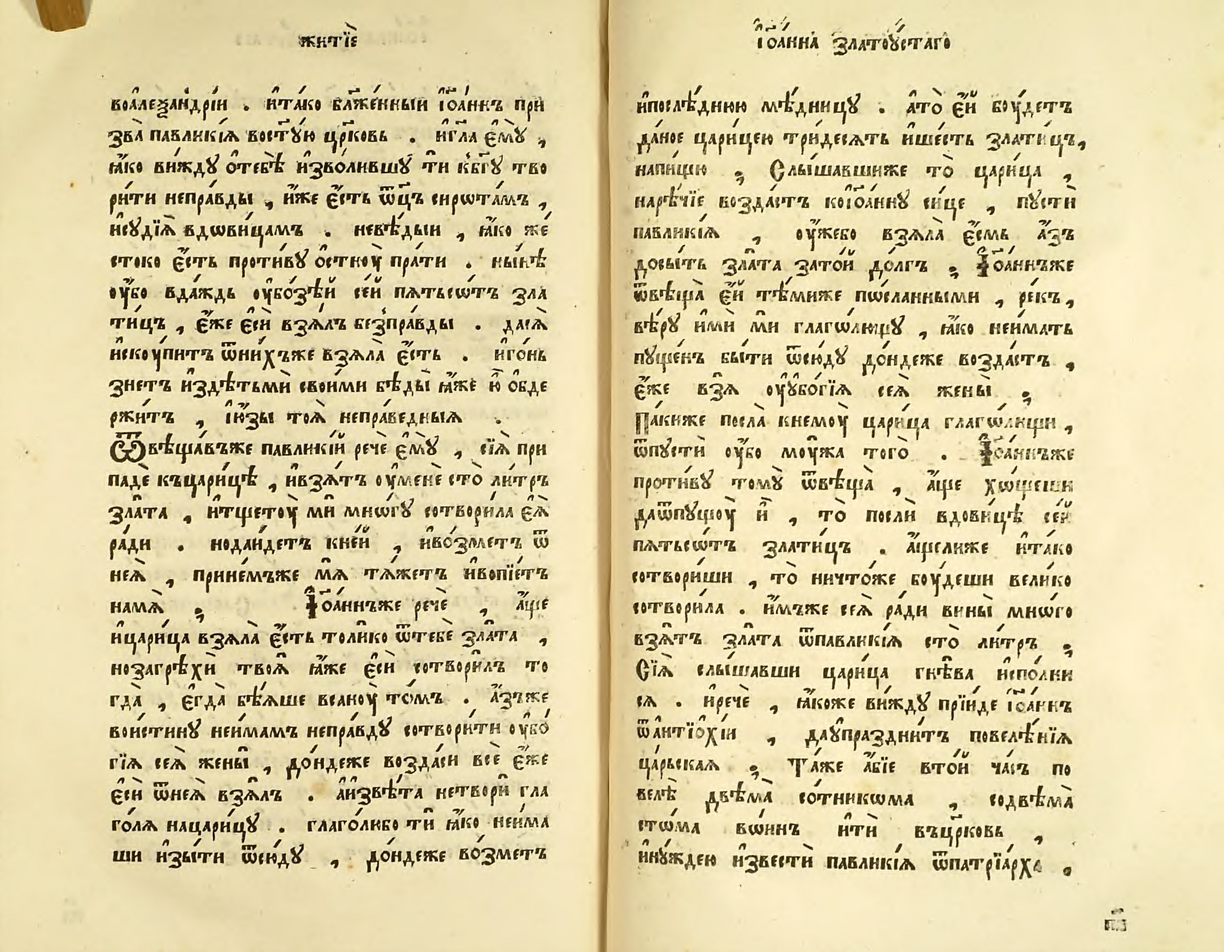 житїѐ
воалеѯа́ндрїи . и҆та́ко бл҃же́нный і҆ѡа́ннъ при
зва̀ павли́кїѧ востꙋ́ю цр҃ковь . и҆гла є҆мꙋ̀ ,
ꙗ҆́ко ви́ждꙋ ѻ҆тебѣ̀ и҆зво́лившꙋ ти кбг҃ꙋ тво
ри́ти непра́вды , и҆́же є҆́сть ѻ҆ц҃ъ сирѡта́мъ ,
исꙋдїѧ̀ вдови́цамъ . невѣ́дыи , ꙗ҆́ко же
стоко є҆́сть проти́вꙋ ѻ҆стноу̀ пра́ти . ны́нѣ
ѹ҆́бо вда́ждь ѹ҆бо́зѣй се́й пѧтьсѡ́тъ зла
ти́цъ , є҆́же є҆сѝ взѧ́лъ беспра́вды . дасѧ̀
и҆скоу́питъ ѿни́хъже взѧ́ла є҆́сть . и҆го́нь
знетъ и҆здѣтьмѝ свои́ми бѣ́ды ꙗ҆́же ю҆̀ ѻ҆бде
ржи́тъ , і҆ю҆́зы тоѧ̀ непра́ведныѧ .
Ѿвѣща́въже павли́кїй речѐ є҆мꙋ̀ , сїѧ̀ при
падѐ къцари́цѣ , и҆взѧ́тъ ѹ҆менѐ сто̀ ли́тръ
зла́та , и҆тщетоу̀ ми мно́гꙋ сотвори́ла є҆ѧ̀
ра́ди . нода́идетъ кне́й , и҆во́зметъ ѿ
неѧ̀ , прине́мъже мѧ̀ тѧ́жетъ и҆вопїе́тъ
нама̀ ; І҆ѡа́ннъже речѐ , а҆́ще
и҆цари́ца взѧ́ла є҆́сть толи́ко ѿтебѐ зла́та ,
нозагрѣхѝ твоѧ̀ ꙗ҆́же є҆сѝ сотвори́лъ то
гда̀ , є҆гда̀ бѣ́ѧше всаноу̀ то́мъ . а҆́зъже
вои́стинꙋ неи́мамъ непра́вдꙋ сотвори́ти ѹ҆бо́
гїѧ сеѧ̀ жены̀ , до́ндеже возда́си всѐ є҆́же
є҆сѝ ѿнеѧ̀ взѧ́лъ . а҆извѣ́та нетворѝ гла
го́лѧ нацари́цꙋ . глаго́либо тѝ ꙗ҆́ко неи́ма
ши и҆зы́ти ѿсю́дꙋ , до́ндеже во́зметъ
і҆ѡа́нна златоꙋ́стаго
и҆послѣ́днюю мѣ́дницꙋ . а҆то̀ є҆́й боу́детъ
да́ное цари́цею три́десѧть и҆ше́сть злати́цъ,
напи́шю ; Слы́шавшиже то̀ цари́ца ,
нарѣ́чїе возда́стъ коі҆ѡа́ннꙋ си́це , пꙋстѝ
павли́кїѧ , ѹ҆́жебо взѧ́ла є҆́смь а҆́зъ
до́сыть зла́та зато́й до́лгъ ; І҆ѡа́ннъже
ѿвѣща̀ є҆́й тѣ́миже по́сланными , ре́къ,
вѣ́рꙋ и҆мѝ мѝ глаго́лющꙋ , ꙗ҆́ко неи́мать
пꙋще́нъ бы́ти ѿсю́дꙋ до́ндеже возда́стъ ,
є҆́же взѧ̀ ѹ҆ꙋбо́гїѧ сеѧ̀ жены̀ ;
Па́киже посла̀ кнемоу̀ цари́ца глаго́лющи ,
ѿпꙋстѝ ѹ҆́бо моу́жа того̀ . І҆ѡа́ннъже
проти́вꙋ томꙋ̀ ѿвѣща̀ , а҆́ще хо́щеши
даѿпꙋщоу̀ и҆̀ , то̀ послѝ вдови́цѣ се́й
пѧтьсѡ́тъ злати́цъ . а҆́щелиже и҆та́ко
сотвори́ши , то̀ ничто́же боу́деши вели́ко
сотвори́ла . и҆́мъже сеѧ̀ ра́ди вины̀ мно́го
взѧ́тъ зла́та ѿпавли́кїѧ сто̀ ли́тръ ;
Сїѧ̀ слы́шавши цари́ца гнѣ́ва и҆спо́лни
сѧ . и҆речѐ , ꙗ҆́коже ви́ждꙋ прїи́де і҆ѡа́ннъ
ѿантїо́хїи , даꙋпраздни́тъ повелѣ́нїѧ
ца́рьскаѧ ; Та́же а҆́бїе вто́й ча́съ по
велѣ̀ двѣ́ма со́тникома , содвѣма̀
сто́ма во́инъ и҆тѝ въцр҃ковь ,
и҆нꙋ́ждею и҆звестѝ павли́кїѧ ѿпатрїа́рха ,